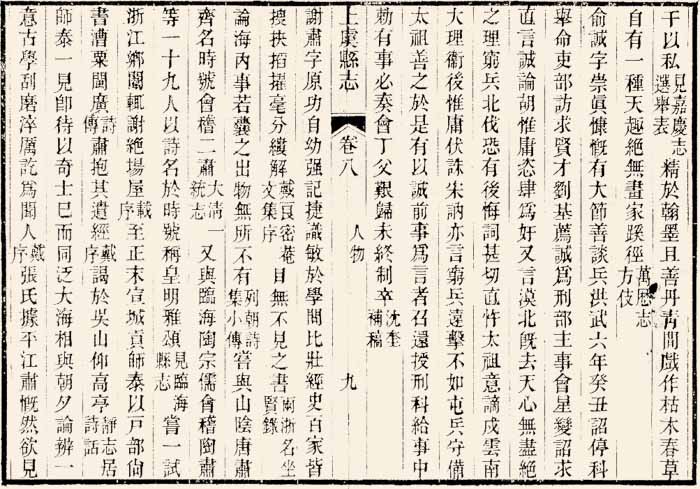 干以私見嘉慶志選舉表精於翰墨且善丹靑間戲作枯木春草
自有一種天趣絕無畫家蹊徑萬曆志方伎
俞誠字崇眞慷慨有大節善談兵洪武六年癸丑詔停科
舉命吏部訪求賢才劉基薦誠爲刑部主事會星變詔求
直言誠論胡惟庸恣肆爲奸又言漠北旣去天心無盡絕
之理窮兵北伐恐有後悔詞甚切直忤太祖意謫戍雲南
大理衞後惟庸伏誅朱訥亦言窮兵遠擊不如屯兵守備
太祖善之於是有以誠前事爲言者召還授刑科給事中
勅有事必奏會丁父艱歸未終制卒沈奎補稿
上虞縣志 卷八 人物 九
謝肅字原功自幼强記捷識敏於學問比壯經史百家皆
搜抉搯擢毫分縷解戴良密菴文集序目無不見之書兩浙名賢錄坐
論海內事若囊之出物無所不有列朝詩集小傳嘗與山陰唐肅
齊名時號會稽二肅大淸一統志又與臨海陶宗儒會稽陶肅
等一十九人以詩名於時號稱皇明雅頌見臨海縣志嘗一試
浙江鄉闈輒謝絕場屋戴序至正末宣城貢師泰以戶部尙
書漕粟閩廣詩傳肅抱其遺經戴序謁於吳山仰高亭靜志居詩話
師泰一見卽待以奇士巳而同泛大海相與朝夕論辨一
意古學刮磨淬厲訖爲聞人戴序張氏據平江肅慨然欲見